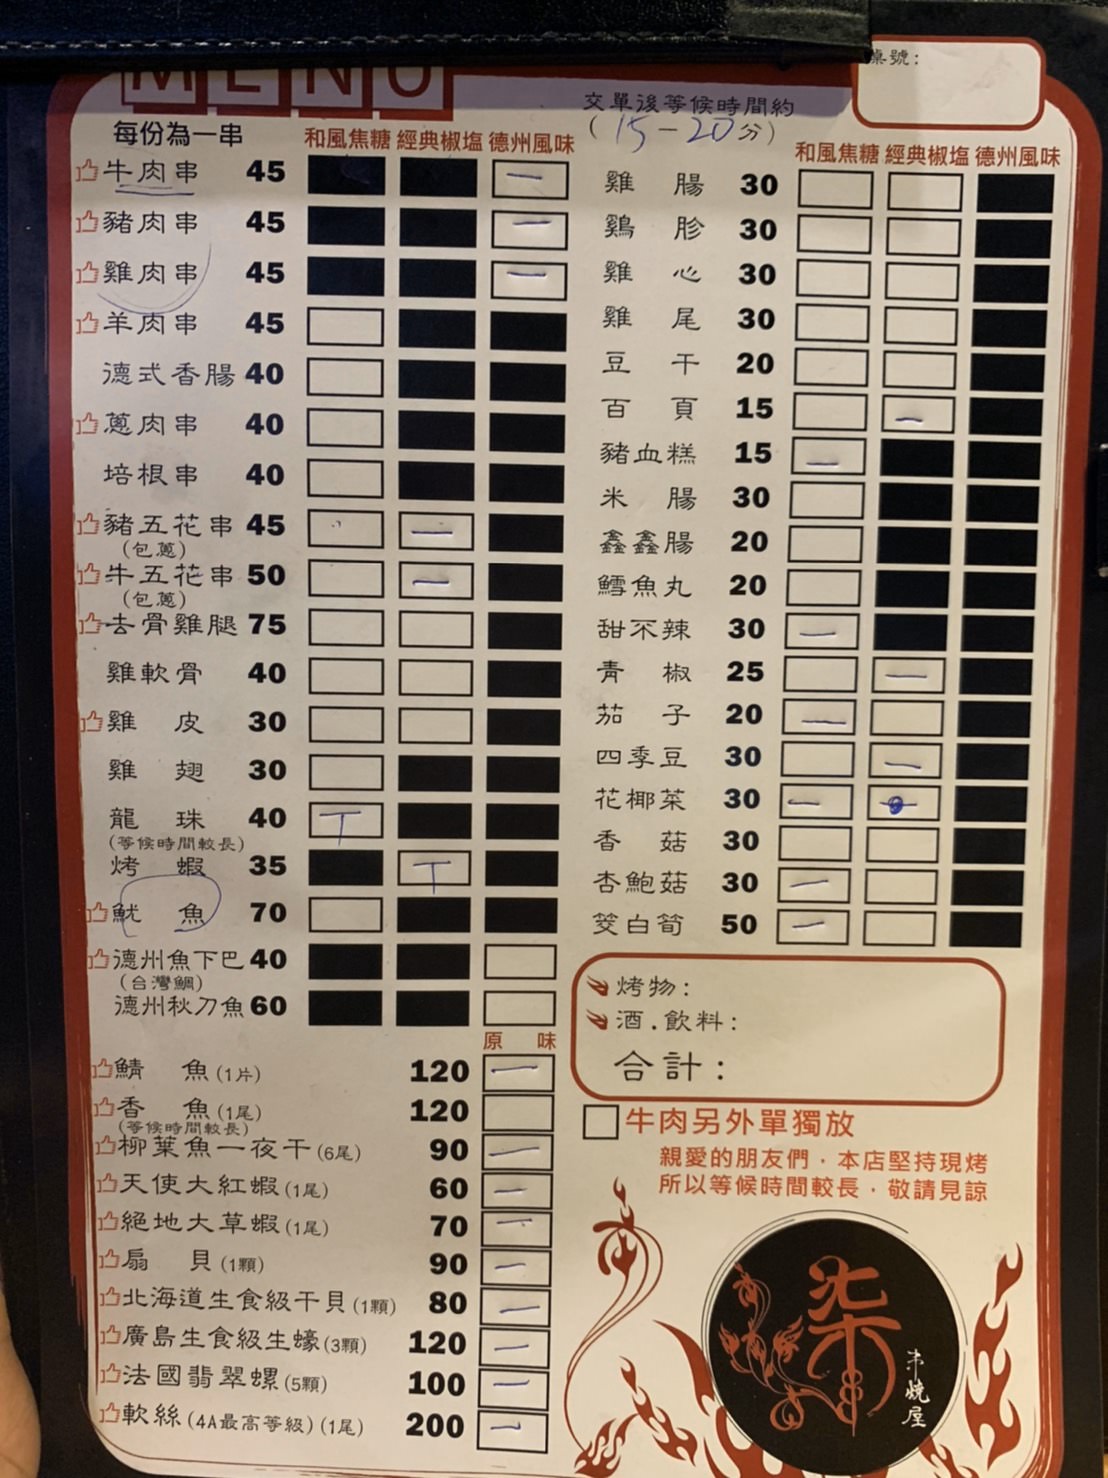 MENU
每份為一串
和風焦糖 經典椒塩 德州風味
牛肉串 45 一
豬肉串 45 一
雞肉串 45 一
羊肉串 45
德式香腸 40
蔥肉串 40
培根串 40
豬五花串 45 一
(包蔥)
牛五花串 50 一
(包蔥)
去骨雞腿 75
雞軟骨 40
雞皮 30
雞翅 30
龍珠 40 T
(等候時間較長)
烤蝦 35 T
魷魚 70
德州魚下巴 40
(台灣鯛)
德州秋刀魚 60
原味
鯖魚(1片) 120 一
香魚(1尾) 120
(等候時間較長)
柳葉魚一夜干(6尾) 90 一
天使大紅蝦(1尾) 60 一
絕地大草蝦(1尾) 70 一
扇貝(1顆) 90 一
北海道生食級干貝(1顆) 80 一
廣島生食級生蠔(3顆) 120 一
法國翡翠螺(5顆) 100 一
軟絲(4A最高等級)(1尾) 200 一
桌號:
交單後等候時間約
(15-20分)
和風焦糖 經典椒塩 德州風味
雞腸 30
鷄胗 30
雞心 30
雞尾 30
豆干 20
百頁 15 一
豬血糕 15 一
米腸 30
鑫鑫腸 20
鱈魚丸 20
甜不辣 30 一
青椒 25 一
茄子 20 一
四季豆 30 一
花椰菜 30 一
香菇 30
杏鮑菇 30 一
筊白筍 50 一
烤物:
酒.飲料:
合計:
牛肉另外單獨放
親愛的朋友們,本店堅持現烤
所以等候時間較長,敬請見諒
柒
串燒屋